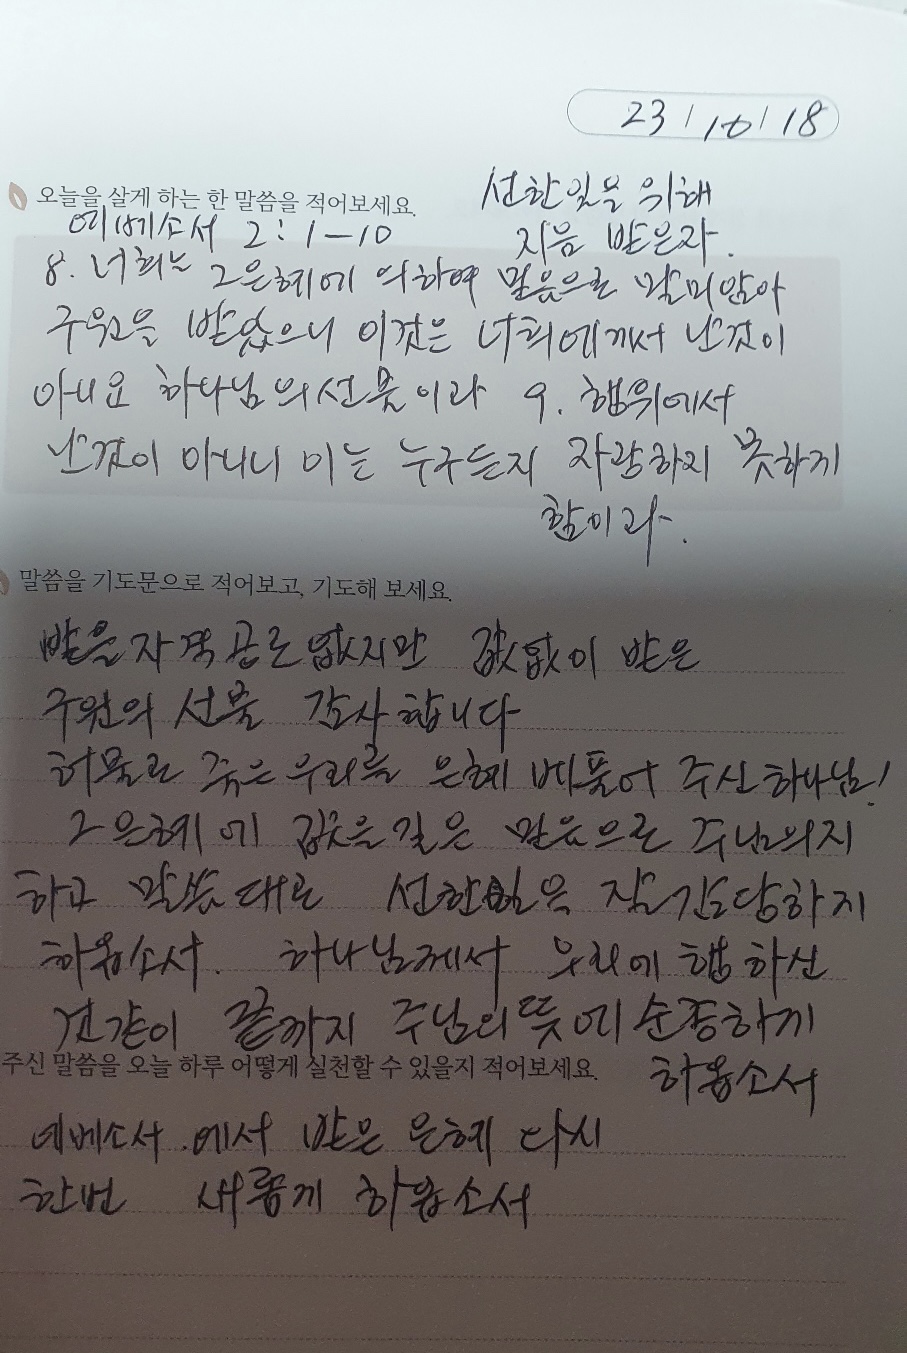 23/10/18
오늘을 살게 하는 한 말씀을 적어보세요.
선한일을 위해
지음 받은자.
에베소서 2:1-10
8. 너희는 그은혜에 의하여 믿음으로 말미암아
구원을 받았으니 이것은 너희에게서 난것이
아니요 하나님의선물이라 9. 행위에서
난것이 아니니 이는 누구든지 자랑하지 못하게
함이라.
말씀을 기도문으로 적어보고, 기도해 보세요.
받을자격 공로없지만 값없이 받은
구원의 선물 감사합니다
허물로 죽은 우리를 은혜 베풀어 주신하나님!
그은혜에 믿음으로 주님의지
하고 말씀대로 선한일을 잘감당하지
하옵소서. 하나님께서 우리에 행하신
것같이 끝까지 주님의뜻에순종하게
하옵소서
주신 말씀을 오늘 하루 어떻게 실천할 수 있을지 적어보세요.
에베소서.에서 받은 은혜 다시
한번 새롭게 하옵소서